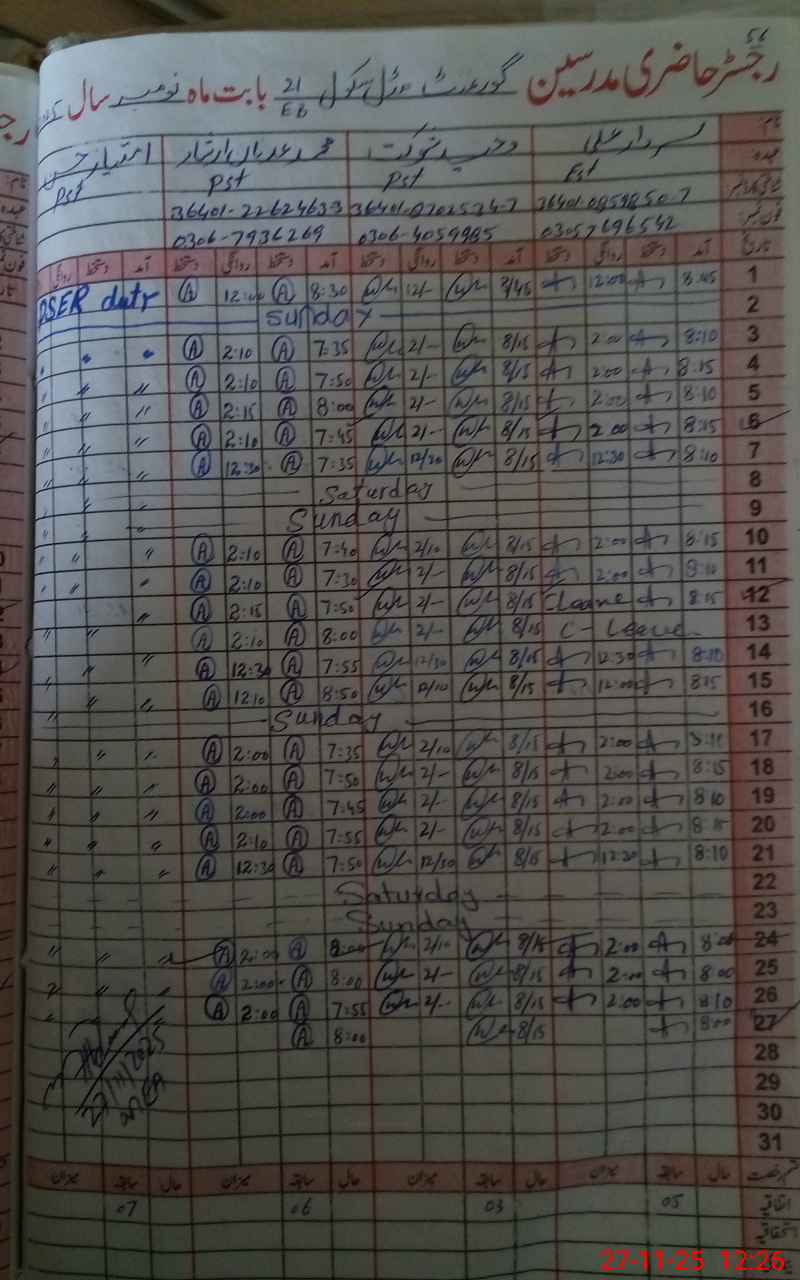 56
رجسٹر حاضری مدرسین گورنمنٹ ماڈل سکول 21/EB بابت ماہ نومبر سال
نام سردار علی وحید شوکت محمد عدنان ارشاد امتیاز حسن
عہدہ Est Pst Pst Pst
36401-22624633
فون نمبر 03057696542 0306-4059985 0306-7936269
تاریخ آمد دستخط روانگی دستخط آمد دستخط روانگی دستخط آمد دستخط روانگی دستخط آمد دستخط روانگی
1 8:45 12:00 8/45 12/- 8:30 A 12:00 A PSER duty
2 Sunday
3 8:10 2:00 8/15 2/- 7:35 A 2:10 A
4 8:15 2:00 8/15 2/- 7:50 A 2:10 A
5 8:10 2:00 8/15 2/- 8:00 A 2:15 A
6 8:15 2:00 8/15 2/- 7:45 A 2:10 A
7 8:10 12:30 8/15 12/30 7:35 A 12:30 A
8 Saturday
9 Sunday
10 8:15 2:00 8/15 2/10 7:40 A 2:10 A
11 8:10 2:00 8/15 2/- 7:30 A 2:10 A
12 8:15 Cleave 8/15 2/- 7:50 A 2:15 A
13 C-Leeve 8/15 2/- 8:00 A 2:10 A
14 8:10 12:30 8/15 12/30 7:55 A 12:30 A
15 8:15 12:00 8/15 12/10 8:50 A 12:10 A
16 Sunday
17 2:00 8/15 2/10 7:35 A 2:00 A
18 8:15 2:00 8/15 2/- 7:50 A 2:00 A
19 8:10 2:00 8/15 2/- 7:45 A 2:00 A
20 8:15 2:00 8/15 2/- 7:55 A 2:10 A
21 8:10 12:30 8/15 12/30 7:50 A 12:30 A
22 Saturday
23 Sunday
24 8:00 2:00 8/15 2/10 8:00 A 2:00 A
25 8:00 2:00 8/15 2/- 8:00 A 2:00 A
26 8:10 2:00 8/15 2/- 7:55 A 2:00 A
27 8:00 8/15 8:00 A
27/11/2025
28
29
30
31
حال سابقہ میزان حال سابقہ میزان حال سابقہ میزان حال سابقہ میزان
اتفاقیہ 05 03 06 07
27-11-25 12:26